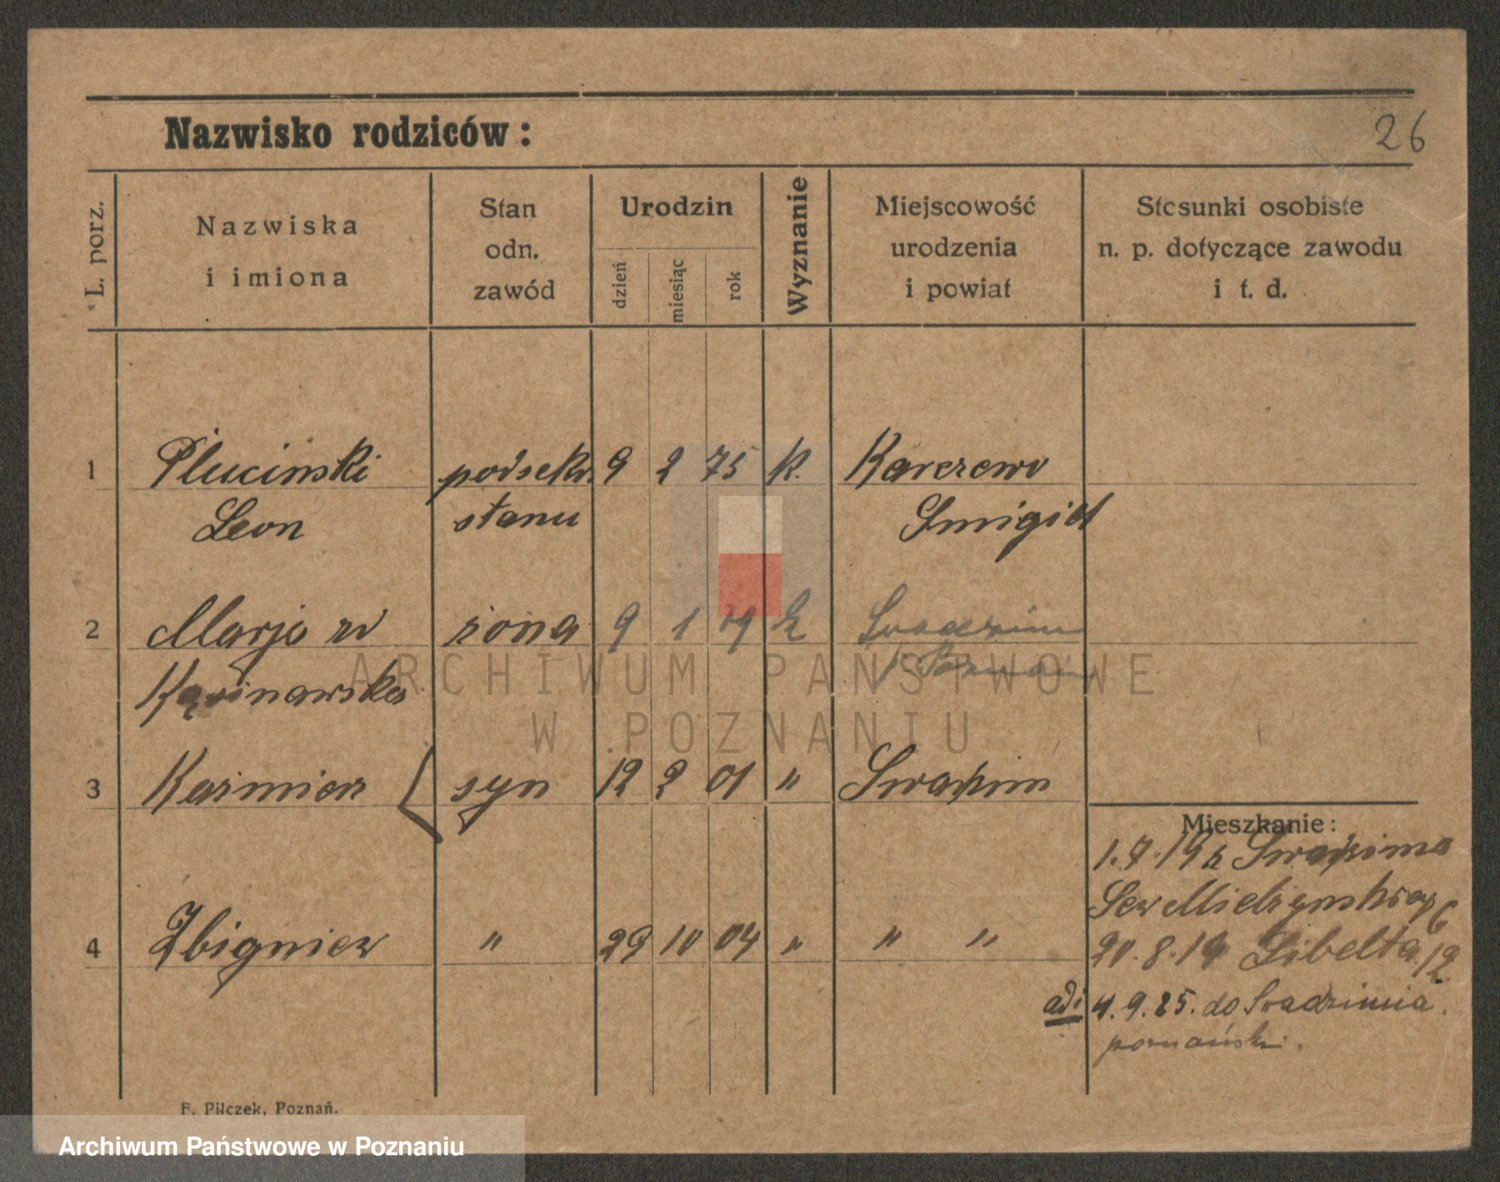 26
Nazwisko rodziców:
L. porz.
Nazwiska
i imiona
Stan
odn.
zawód
Urodzin
dzień
miesiąc
rok
Wyznanie
Miejscowość
urodzenia
i powiat
Stosunki osobiste
n. p. dotyczące zawodu
i t. d.
1 Pluciński podsekr. 9 2 75 k. Karczewo
Leon stanu Smigiel
2 Marja żona 9 1
3 Kazimierz syn 12 2 01 " Swadzim
Mieszkanie:
1.7.19 z Swadzima
Sew Mielzynskiego 6
4 Zbigniew " 29 10 04 " " "
20.8.19 Libelta 12
adi 4.9.25. do Swadzimia
poznański.
F. Pilczek, Poznań.
ARCHIWUM PAŃSTWOWE
W POZNANIU
Archiwum Państwowe w Poznaniu